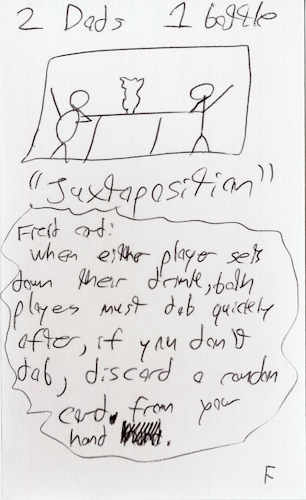 2 Dads 1 bottle
"Juxtaposition"
Field card:
when either player sets
down their drink, both
players must dab quickly
after, if you don't
dab, discard a random
card from your
hand.
F